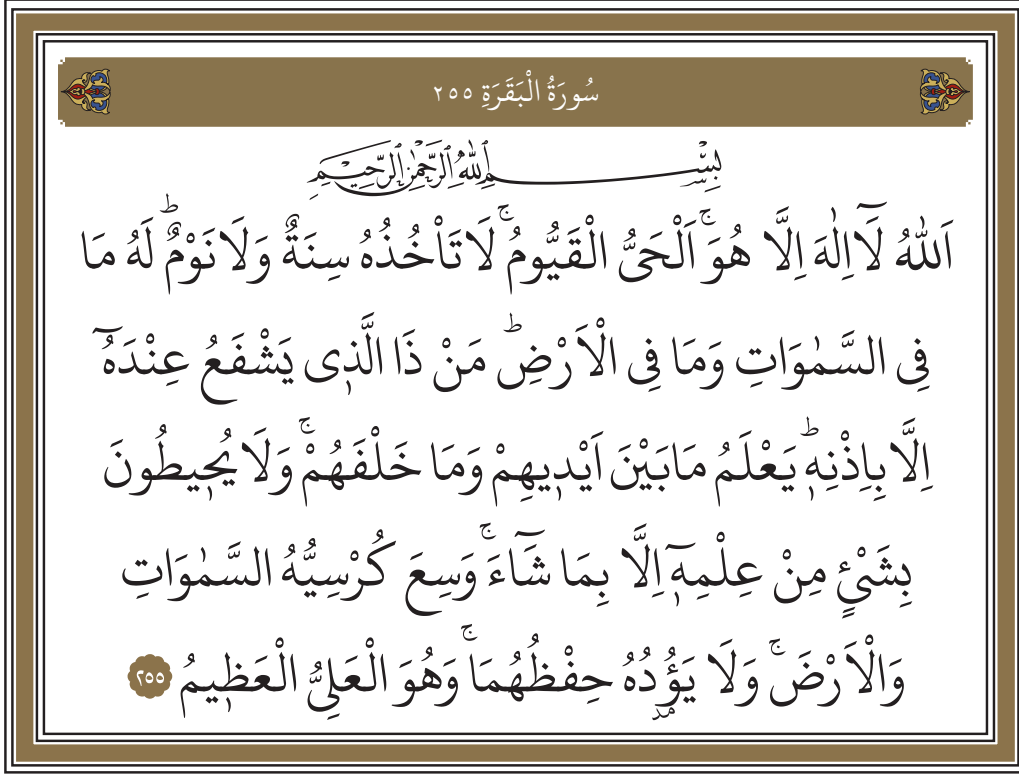 سُورَةُ الْبَقَرَةِ ٢٥٥
بِسْمِ اللّٰهِ الرَّحْمٰنِ الرَّحِيمِ
اَللّٰهُ لَٓا اِلٰهَ اِلَّا هُوَۚ اَلْحَىُّ الْقَيُّومُۚ لَا تَاْخُذُهُ سِنَةٌ وَلَا نَوْمٌۜ لَهُ مَا
فِى السَّمٰوَاتِ وَمَا فِى الْاَرْضِۜ مَنْ ذَا الَّذٖى يَشْفَعُ عِنْدَهُٓ
اِلَّا بِاِذْنِهٖۜ يَعْلَمُ مَا بَيْنَ اَيْدٖيهِمْ وَمَا خَلْفَهُمْۚ وَلَا يُحٖيطُونَ
بِشَىْءٍ مِنْ عِلْمِهٖٓ اِلَّا بِمَا شَٓاءَۚ وَسِعَ كُرْسِيُّهُ السَّمٰوَاتِ
وَالْاَرْضَۚ وَلَا يَؤُدُهُ حِفْظُهُمَاۚ وَهُوَ الْعَلِىُّ الْعَظٖيمُ ٢٥٥